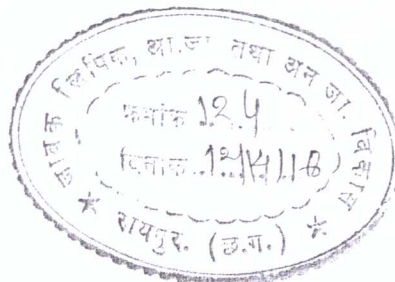 जावक लिपिक, आ.जा. तथा अनु.जा. विकास
क्रमांक 124
दिनांक
★ रायपुर. (छ.ग.) ★